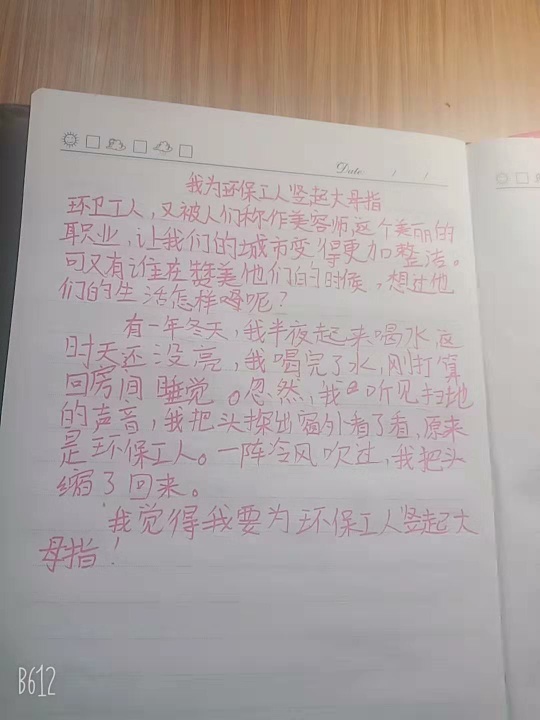 Date / /
我为环保工人竖起大母指
环卫工人，又被人们称作美容师，这个美丽的
职业，让我们的城市变得更加整洁。
可又有谁在赞美他们的时候，想过他
们的生活怎样呢？
有一年冬天，我半夜起来喝水，这
时天还没亮，我喝完了水，刚打算
回房间睡觉。忽然，我听见扫地
的声音，我把头探出窗外看了看，原来
是环保工人。一阵冷风吹过，我把头
缩了回来。
我觉得我要为环保工人竖起大
母指！
B612